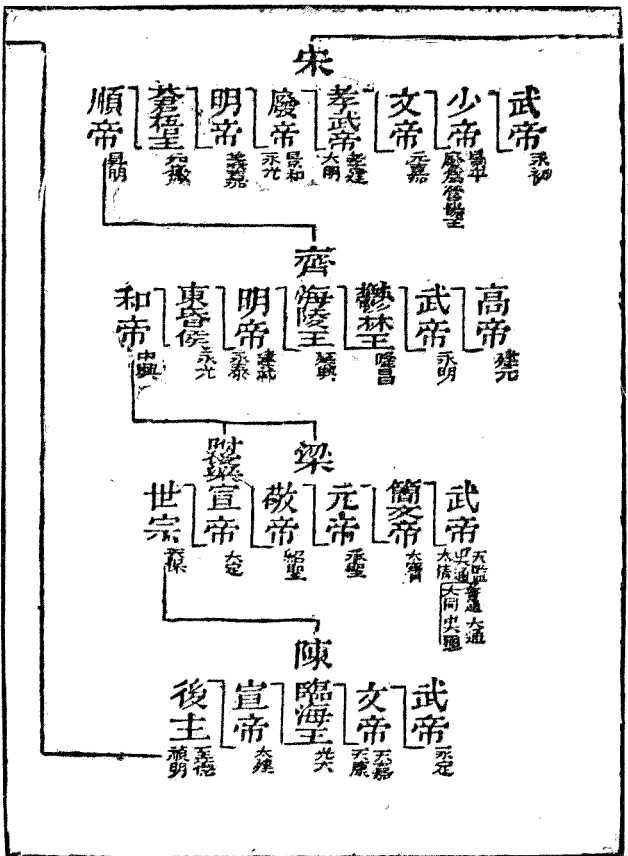 宋
武帝
永初
少帝
景平
廢爲營陽王
文帝
元嘉
孝武帝
孝建
大明
廢帝
景和
永光
明帝
義嘉
蒼梧王
元徽
順帝
昇明
齊
高帝
建元
武帝
永明
鬱林王
隆昌
海陵王
延興
明帝
建武
永泰
東昏侯
永光
和帝
中興
梁
武帝
天監 普通 大通
大同
太清
簡文帝
大寶
元帝
承聖
敬帝
紹聖
附後梁
宣帝
大定
世宗
天保
陳
武帝
永定
文帝
天嘉
天康
臨海王
光大
宣帝
太建
後主
至德
禎明